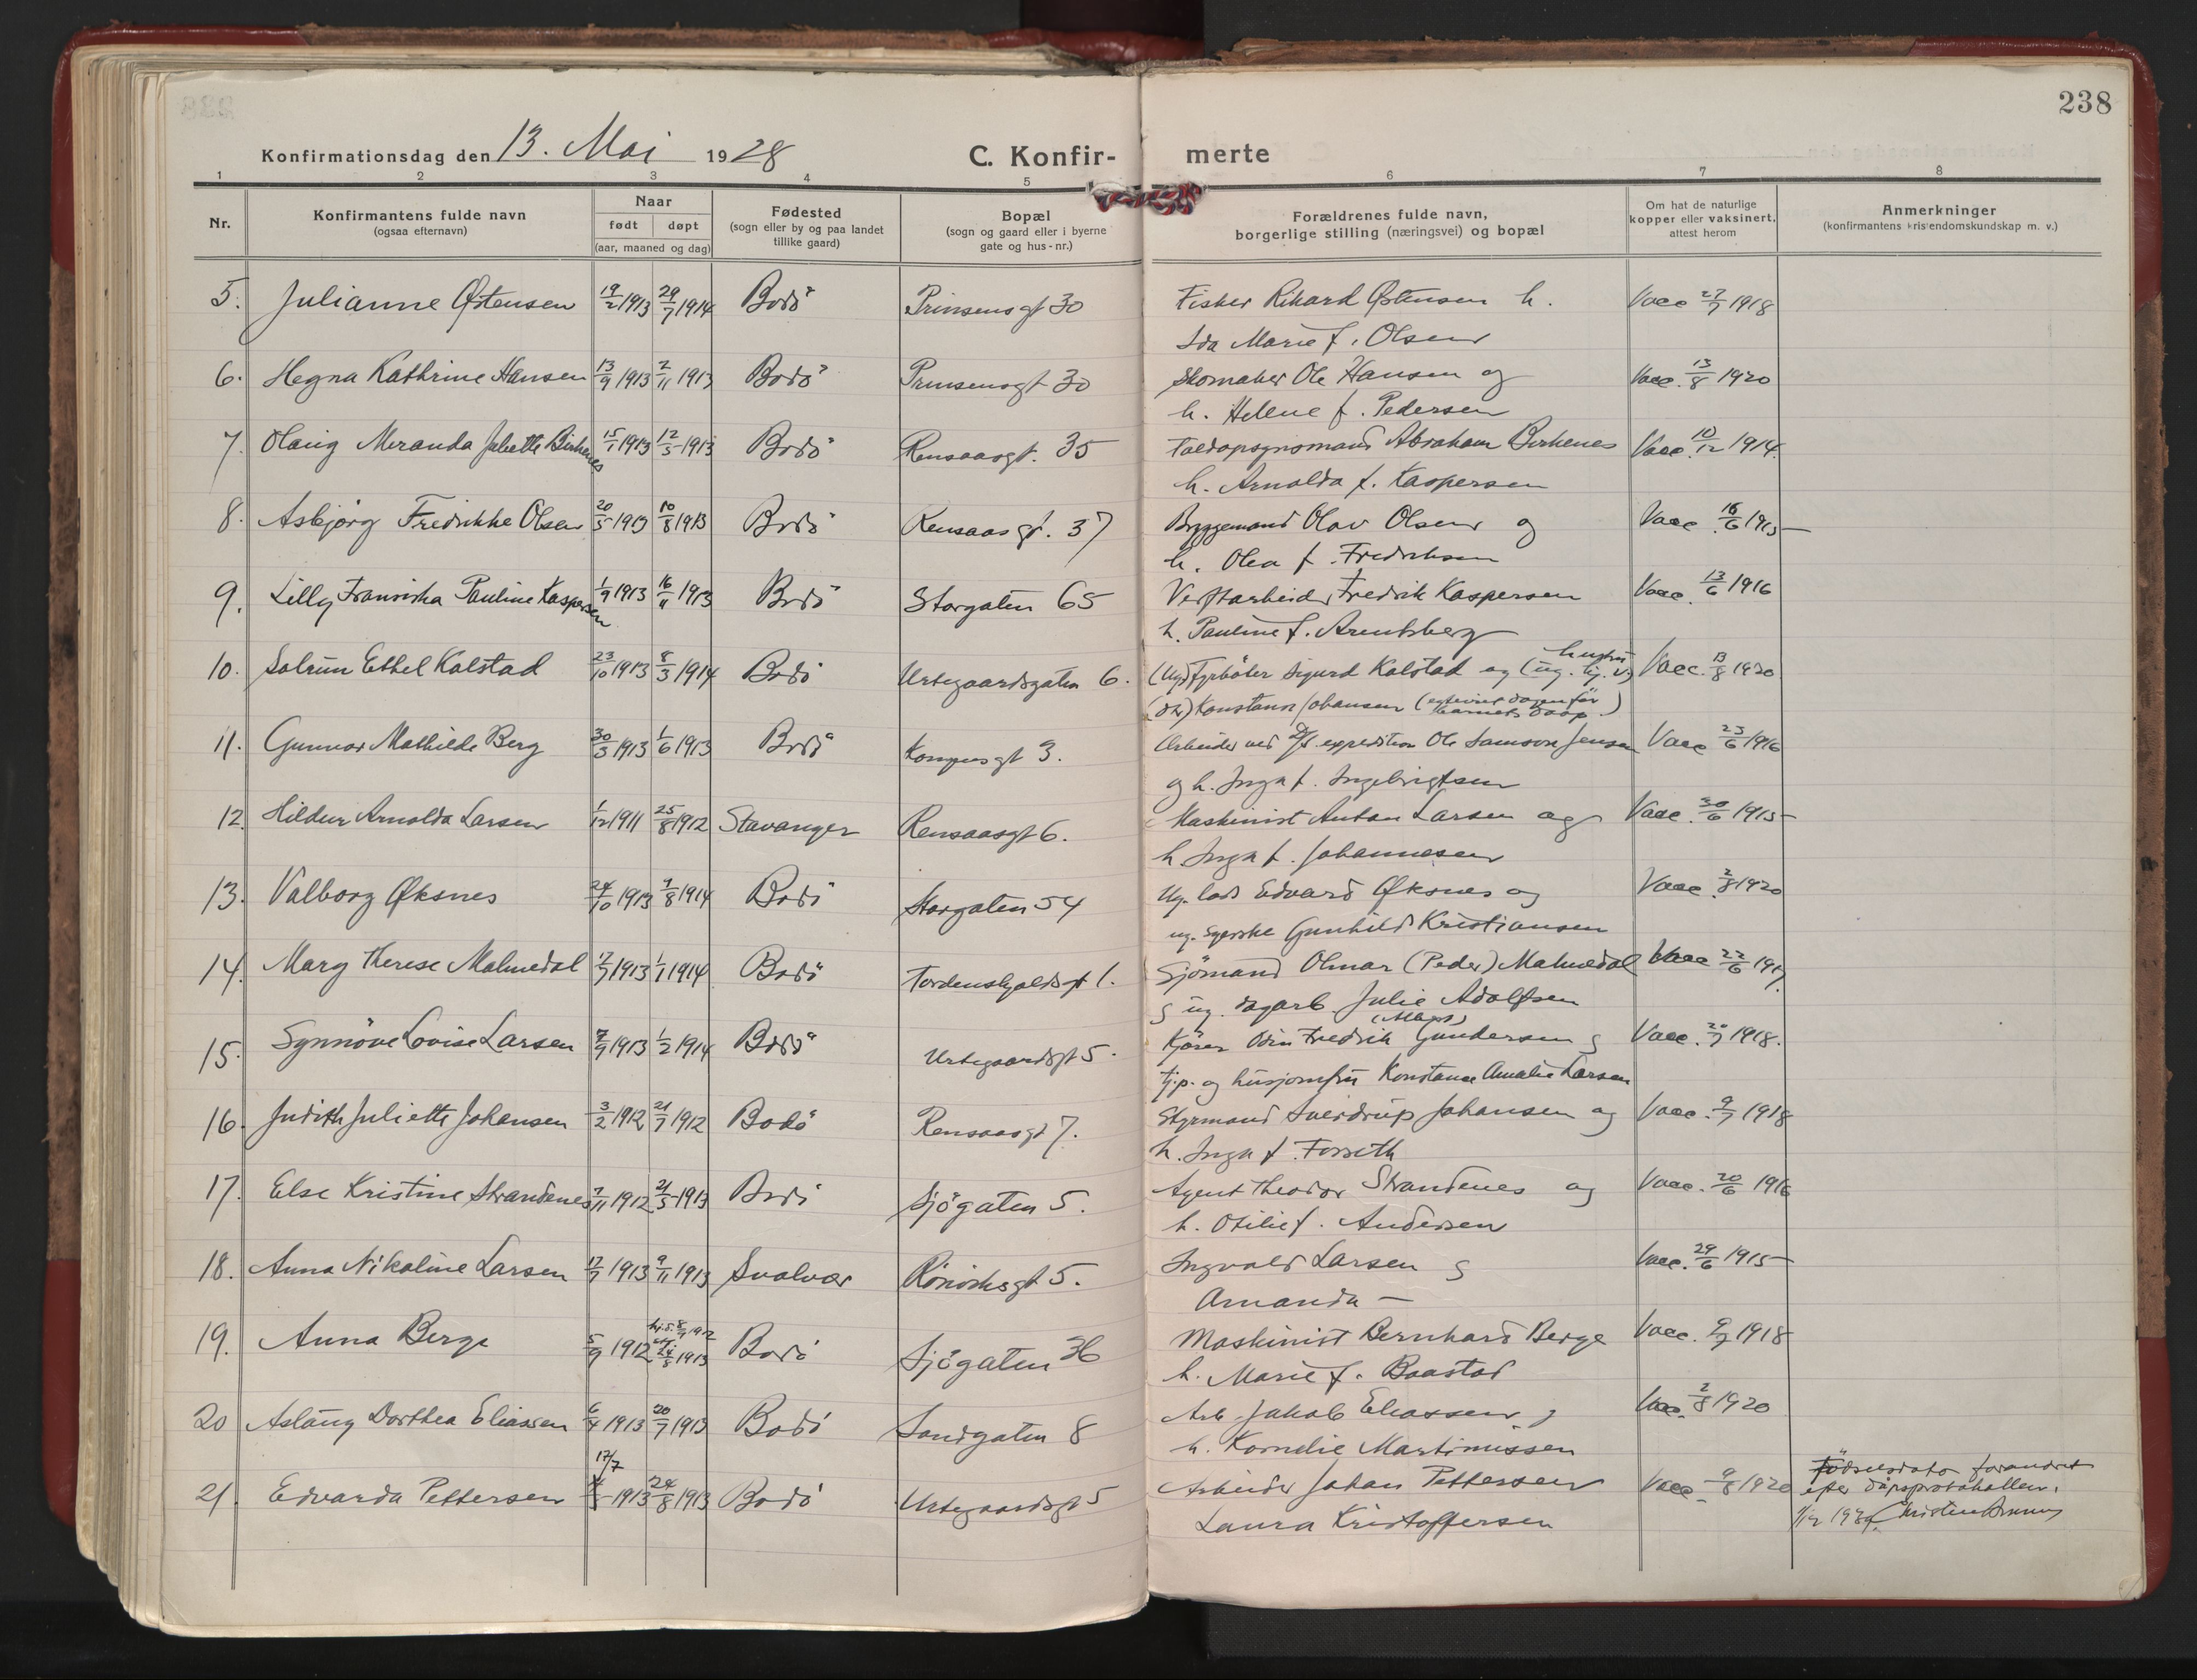 238
Konfirmationsdag den 13. Mai 1928
C. Konfir- merte
1 2 3 4 5 6 7 8
Nr.
Konfirmantens fulde navn
(ogsaa efternavn)
Naar
født døpt
(aar, maaned og dag)
Fødested
(sogn eller by og paa landet
tillike gaard)
Bopæl
(sogn og gaard eller i byerne
gate og hus-nr.)
Forældrenes fulde navn,
borgerlige stilling (næringsvei) og bopæl
Om hat de naturlige
kopper eller vaksinert,
attest herom
Anmerkninger
(konfirmantens kristendomskundskap m. v.)
5. Julianne Østensen 19/2 1913 29/7 1914 Bodö Prinsensgt 30 Fisker Rikard Østensen h. Vacc 27/7 1918
Ida Marie f. Olsen
6. Hegna Kathrine Hansen 13/9 1913 2/11 1913 Bodö Prinsensgt 30 Skomaker Ole Hansen og Vacc. 13/8 1920
h. Helene f. Pedersen
7. Olaug Meranda Juliette Birkenes 15/1 1913 12/3 1913 Bodö Rensaasgt. 35 Toldopsynsmand Abraham Birkenes Vacc. 10/12 1914.
h. Arnolda f. Kaspersen
8. Asbjörg Fredrikke Olsen 20/5 1913 10/8 1913 Bodö Rensaasgt. 37 Byggemand Olav Olsen og Vacc. 16/6 1915
h. Olea f. Fredriksen
9. Lilly Fransiska Pauline Kaspersen 1/9 1913 16/11 1913 Bodö Storgaten 65 Verftarbeider Fredrik Kaspersen Vacc. 13/6 1916
h. Pauline f. Arentsberg
10. Solrun Ethel Kalstad 23/10 1913 8/3 1914 Bodö Urtegaardsgaten 6. (Ug) Fyrböter Sigurd Kalstad og (ug. tj. v) hustru Vacc. 13/8 1920
Konstanse Johansen (egteviet dagen før
barnets daap.)
11. Gunnor Mathilde Berg 30/3 1913 1/6 1913 Bodö Kongensgt 3. Arbeider ved D/S expedition Ole Samson Jensen Vacc 23/6 1916
og h. Inga f. Ingebrigtsen
12. Hildur Arnolda Larsen 1/12 1911 25/8 1912 Stavanger Rensaasgt 6. Maskinist Anton Larsen og Vacc. 30/6 1915
h Inga f. Johannesen
13. Valborg Øksnes 24/10 1913 9/8 1914 Bodö Storgaten 54 Ug. lods Edvard Øksnes og Vacc. 2/8 1920
ug. syerske Gunhild Kristiansen
14. Mary Therese Malmedal 2/7 1913 1/1 1914 Bodö Tordenskjoldsgt 1. Sjömand Olmar (Peder) Malmedal Vacc 22/6 1917.
g ug. dagarb. Julie Adolfsen
15. Synnöve Lovise Larsen 7/9 1913 1/2 1914 Bodö Urtegaardsgt 5. Kjörer Odin Fredrik Gundersen g Vacc. 20/7 1918.
tj.p. og husjomfru Konstanse Amalie Larsen
16. Judith Juliette Johansen 3/2 1912 21/7 1912 Bodö Rensaasgt 7. Styrmand Sverdrup Johansen og Vacc. 9/7 1918
h. Inga f. Forseth
17. Else Kristine Strandenes 7/11 1912 21/3 1913 Bodö Sjögaten 5. Agent Theodor Strandenes og Vacc. 20/6 1916
h. Otilie f. Andersen
18. Anna Nikoline Larsen 17/7 1913 9/11 1913 Svolvær Rönviksgt 5. Ingvald Larsen g Vacc. 29/6 1915
Amanda —
19. Anna Berge 5/9 1912 hj.d. 8/9 1912 24/8 1913 Bodö Sjögaten 36 Maskinist Bernhard Berge Vacc. 9/7 1918
h. Marie f. Baastad
20 Aslaug Dorthea Eliassen 6/4 1913 20/7 1913 Bodö Sandgaten 8 Arb. Jakob Eliassen g Vac. 2/8 1920
h. Kornelie Martinussen
17/7
21. Edvarda Pettersen 1913 24/8 1913 Bodö Urtegaardsgt 5 Arbeider Johan Pettersen Vacc. 9/8 1920
Laura Kristoffersen
Födselsdato forandret
efter dåpsprotokollen.